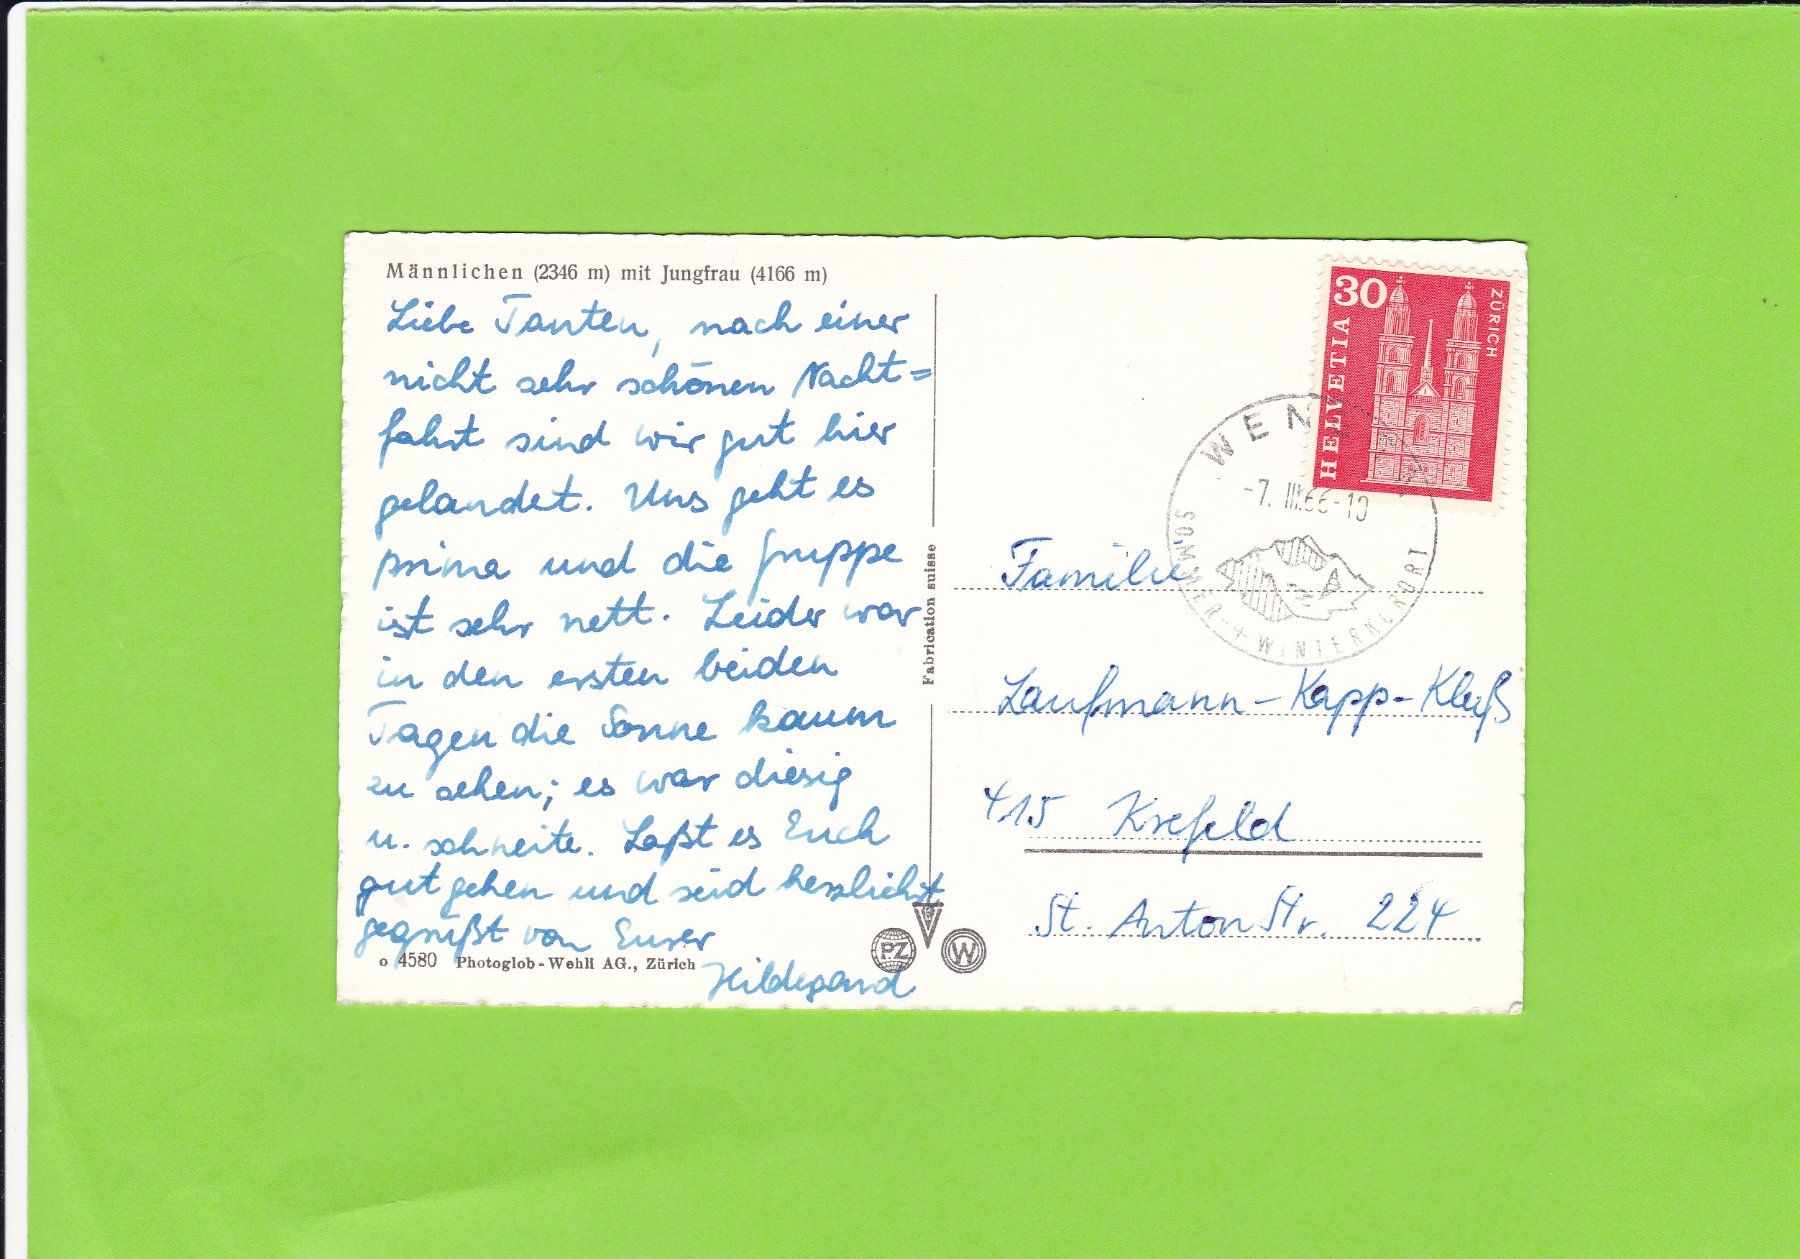 Männlichen (2346 m) mit Jungfrau (4166 m)
Liebe Tanten, nach einer
nicht sehr schönen Nacht=
fahrt sind wir gut hier
gelandet. Uns geht es
prima und die Gruppe
ist sehr nett. Leider war
in den ersten beiden
Tagen die Sonne kaum
zu sehen; es war diesig
u. schneite. Laßt es Euch
gut gehen und seid herzlichst
gegrüßt von Eurer
Hildegard
o 4580 Photoglob-Wehli AG., Zürich
Fabrication suisse
PZ
W
30
HELVETIA
ZÜRICH
WEN
-7. III.66-10
SOMMER- + WINTERKURORT
Familie
Laufmann-Kapp-Kluß
415 Krefeld
St. Anton Str. 224